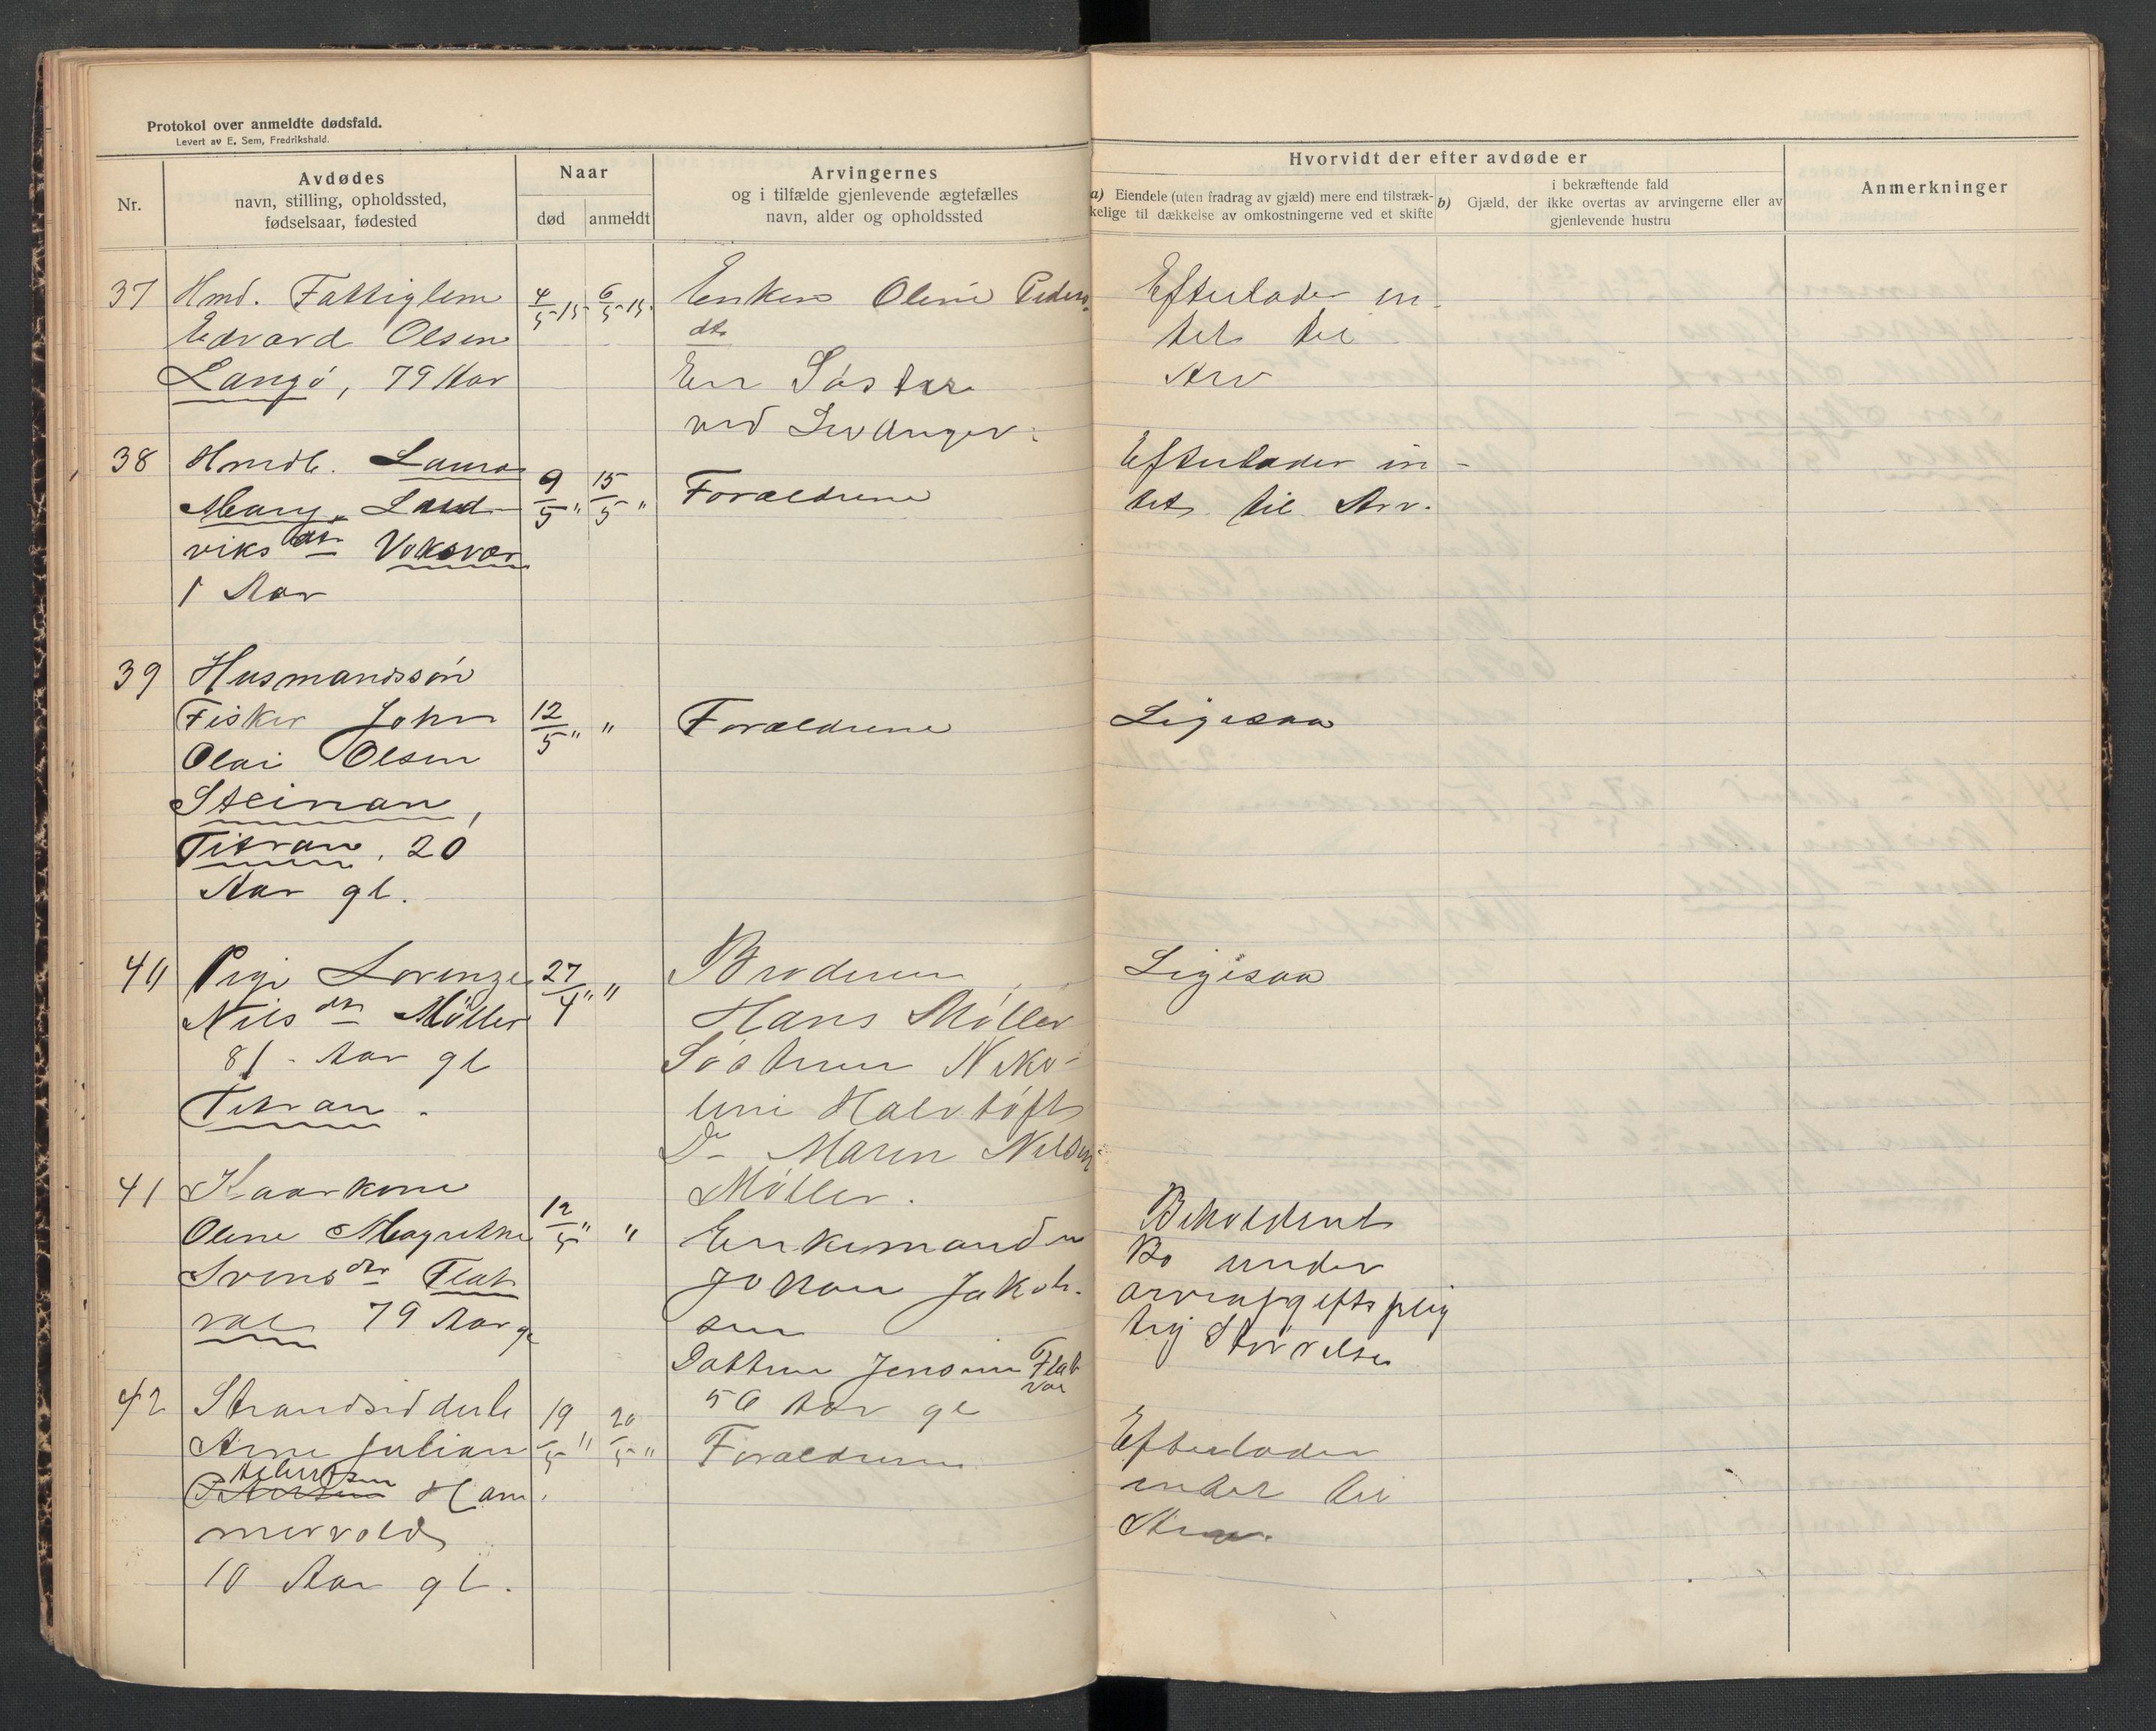 Protokol over anmeldte dødsfald.
Levert av E. Sem, Fredrikshald.
Nr.
Avdødes
navn, stilling, opholdssted,
fødselsaar, fødested
Naar
død
anmeldt
Arvingernes
og i tilfælde gjenlevende ægtefælles
navn, alder og opholdssted
Hvorvidt der efter avdøde er
a) Eiendele (uten fradrag av gjæld) mere end tilstræk-
kelige til dækkelse av omkostningerne ved et skifte
i bekræftende fald
b) Gjæld, der ikke overtas av arvingerne eller av
gjenlevende hustru
Anmerkninger
37 Hmd. Fattiglem
Edvard Olsen
Langø, 79 Aar
4/5 15 6/5 15.
Enken Oline Peders
dtr
En Søster
ved Levanger.
Efterlader in-
tet til
Arv
38 Hmdb. Laura
Mary Lud-
viks dtr Voksvor
1 Aar
9/5 " 15/5 "
Forældrene
Efterlader in-
tet til Arv.
39 Husmandssøn
Fisker John
Olai Olsen
Steinan,
Titran, 20
Aar gl.
12/5 " "
Forældrene
Ligesaa
40 Pige Lorenze
Nils dtr Møller
81 - Aar gl
Titran.
27/4 " "
Broderen
Hans Møller
Søstrene Niko-
line Halvtøft
Do Maren Nilsen
Møller.
Ligesaa
41 Kaarkone
Oline Magrethe
Svens dtr Flat
val 79 Aar gl
12/5 " "
Enkemanden
Johan Jakob-
sen
Datteren Jensine Flat
val
56 Aar gl
Beholdent
Bo under
arveafgiftsplig
tig Størrelse
42 Strandsidderb
Arne Julian
Ham
mervold
10 Aar gl.
19/5 " 20/5 "
Forældrene
Efterlader
intet til
Arv.